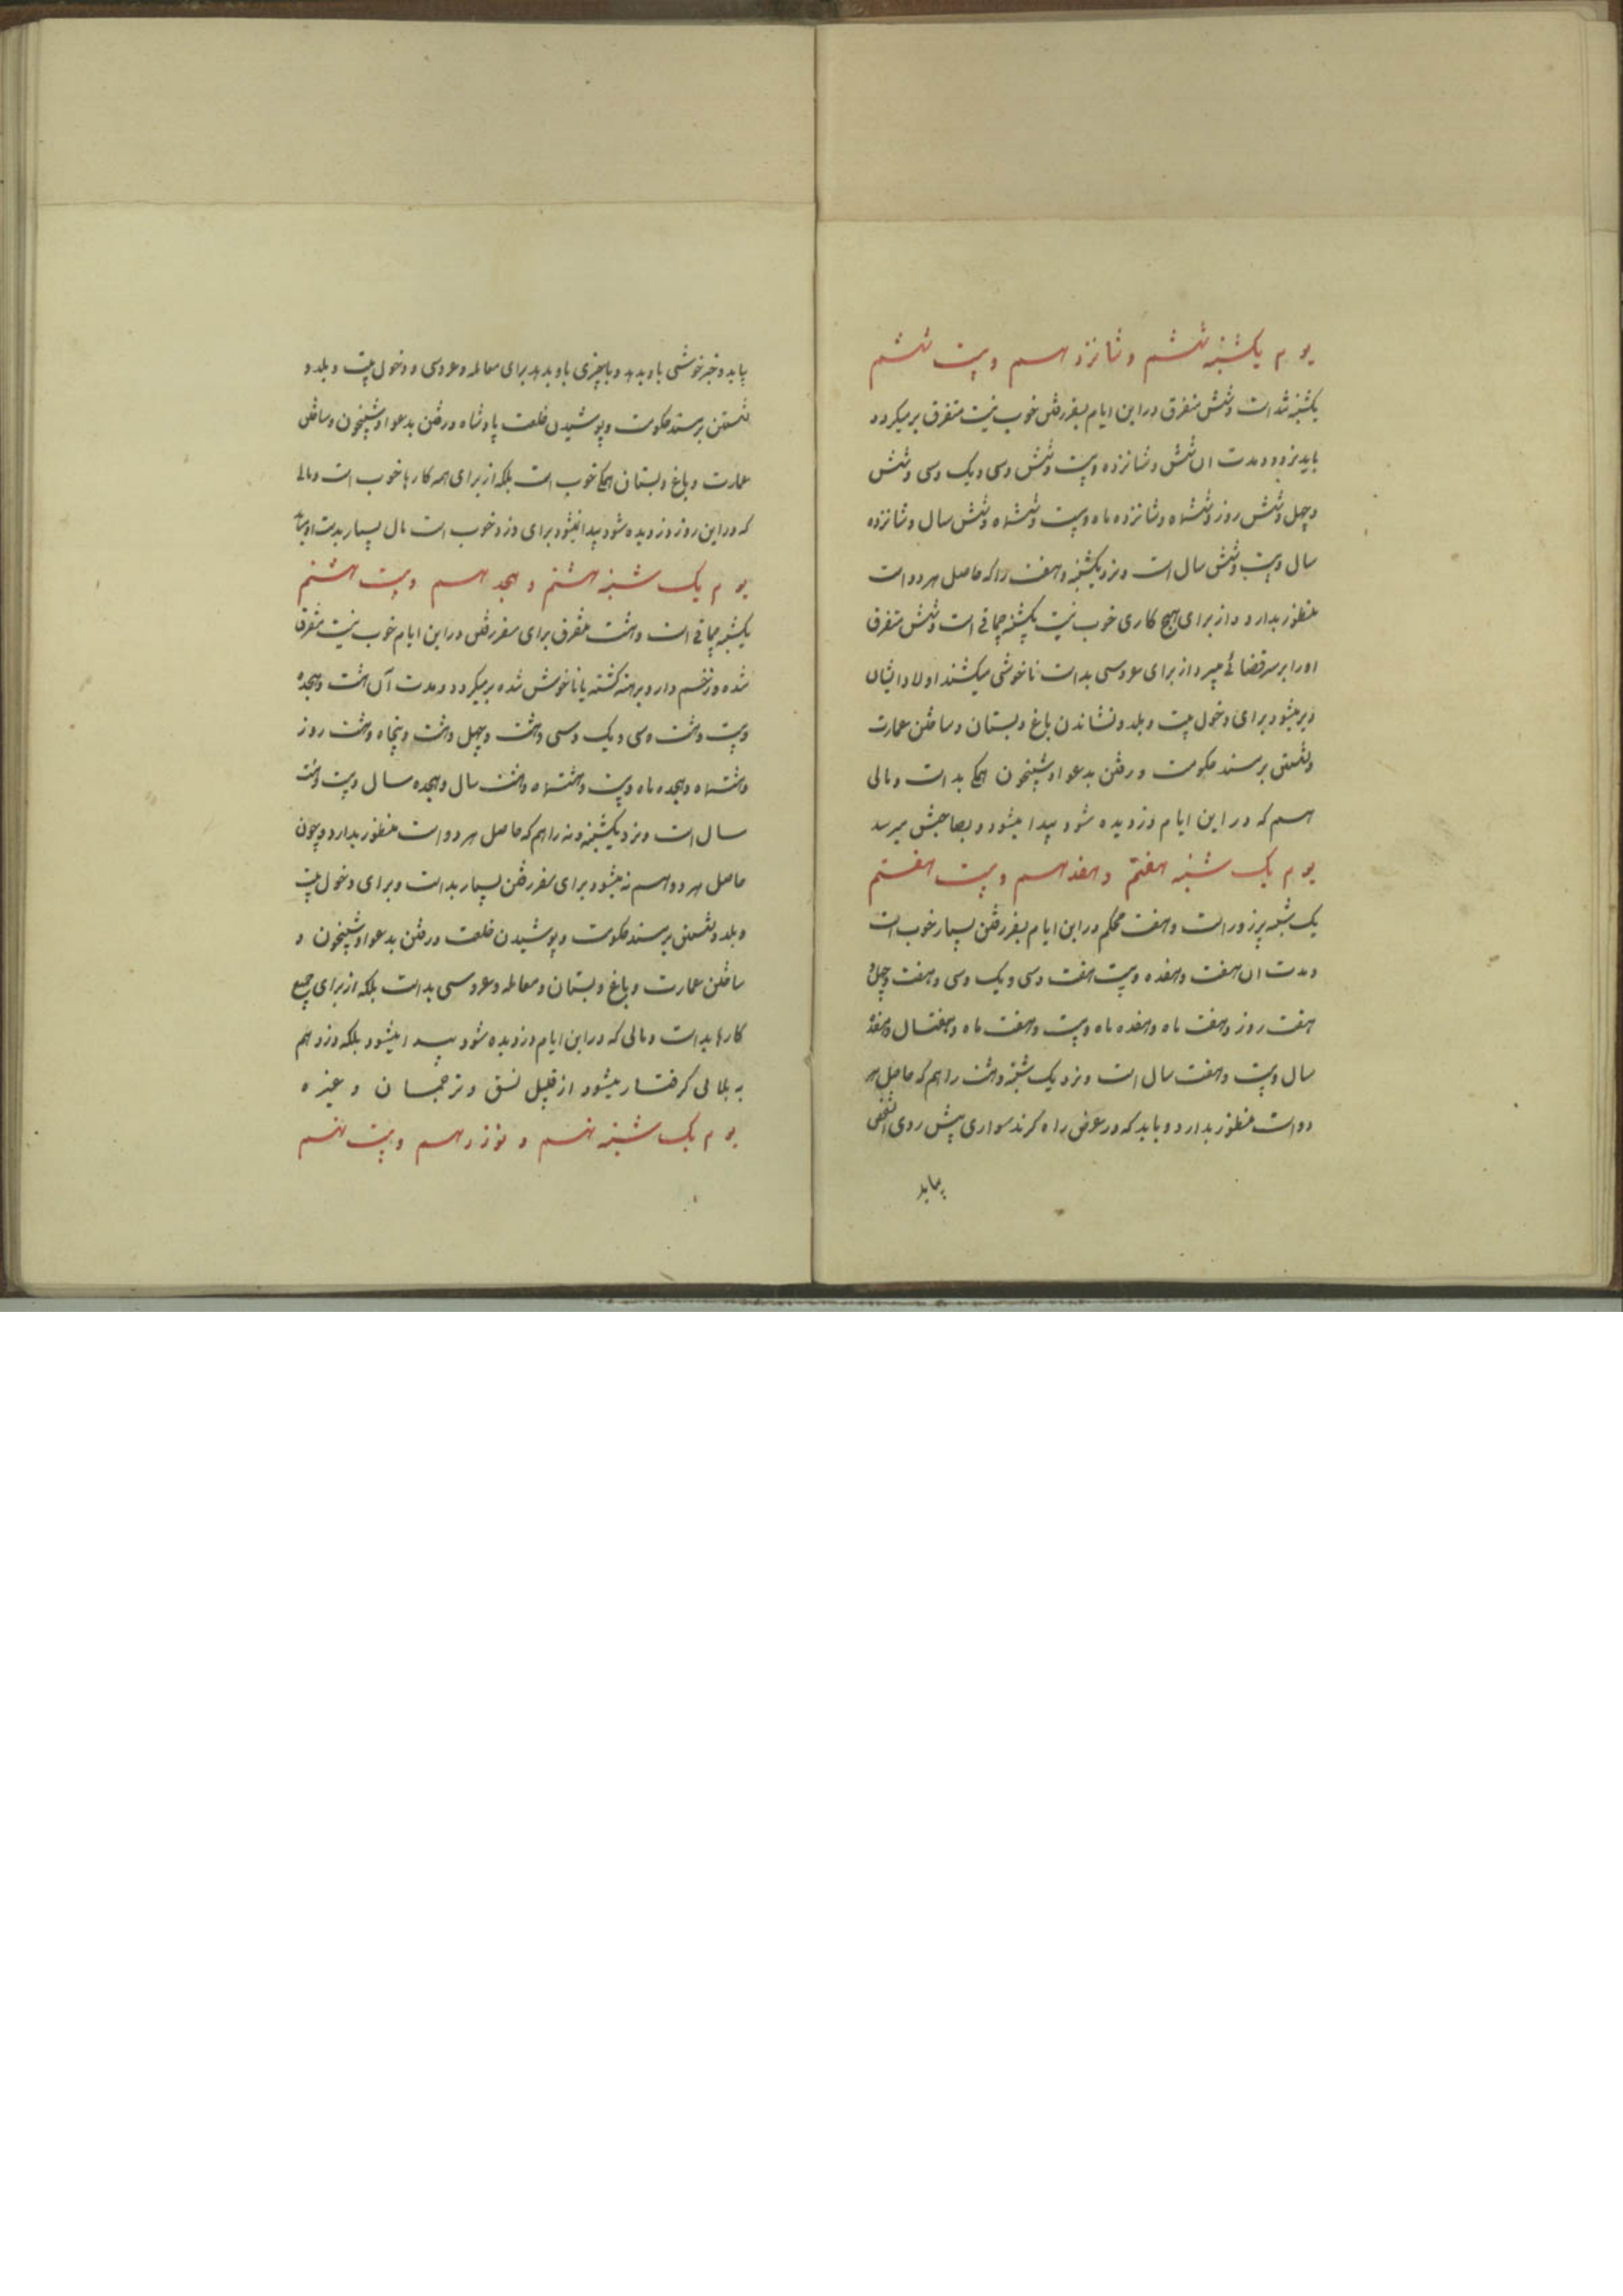 یوم یکشنبه ششم و شانزدهم و بیست ششم
یکشنبه تند است و شش متفرق در این ایام بسفر رفتن خوب نیست متفرق برمیگردد
باید نرود و مدت ان شش و شانزده و بیست و شش و سی و یک و سی و شش
و چهل و شش روز و ششماه و شانزده ماه و بیست و ششماه و شش سال و شانزده
سال و بیست و شش سال است و نزد یکشنبه و هفت را که حاصل هر دو است
منظور بدارد و از برای هیچ کاری خوب نیست یکشنبه چماقی است و شش متفرق
او را بر سر قضائی میبرد از برای عروسی بد است ناخوشی میکشند اولاد ایشان
دیر میشود برای دخول بیت و بلد و نشاندن باغ و بستان و ساختن عمارت
و نشستن بر مسند حکومت و رفتن بدعوا و شبیخون همگی بد است و مالی
هم که در این ایام دزدیده شود پیدا میشود و بصاحبش میرسد
یوم یک شنبه هفتم و هفدهم و بیست هفتم
یک شنبه پرزور است و هفت محکم در این ایام بسفر رفتن بسیار خوب است
و مدت ان هفت و هفده و بیست هفت و سی و یک و سی و هفت و چهل و
هفت روز و هفت ماه و هفده ماه و بیست و هفت ماه و هفتسال و هفده
سال و بیست و هفت سال است و نزد یک شنبه و هشت را هم که حاصل هر
دو است منظور بدارد و باید که در عرض راه کرند سواری پیش روی انشخص
بیاید
بیاید و خبر خوشی باو بدهد و یا چیزی باو بدهد برای معامله و عروسی و دخول بیت و بلد و
نشستن بر مسند حکومت و پوشیدن خلعت پادشاه و رفتن بدعوا و شبیخون و ساختن
عمارت و باغ و بستان همگی خوب است بلکه از برای همه کارها خوب است و مالی
که در این روز دزدیده شود پیدا نمیشود برای دزد خوب است مال بسیار بدست او میاید
یوم یک شنبه هشتم و هجدهم و بیست هشتم
یکشنبه چماقی است و هشت متفرق برای سفر رفتن در این ایام خوب نیست متفرق
شده و زخم دار و برهنه گشته یا ناخوش شده برمیگردد و مدت آن هشت و هجده
و بیست و هشت و سی و یک و سی و هشت و چهل و هشت و پنجاه و هشت روز
و هشتماه و هجده ماه و بیست و هشتماه و هشت سال و هجده سال و بیست و هشت
سال است و نزد یکشنبه و نه را هم که حاصل هر دو است منظور بدارد و چون
حاصل هر دو هم نه میشود برای سفر رفتن بسیار بد است و برای دخول بیت
و بلد و نشستن بر مسند حکومت و پوشیدن خلعت و رفتن بدعوا و شبیخون و
ساختن عمارت و باغ و بستان و معامله و عروسی بد است بلکه از برای جمیع
کارها بد است و مالی که در این ایام دزدیده شود پیدا میشود بلکه دزد هم
به بلائی گرفتار میشود از قبیل نسق و ترجمان و غیره
یوم یک شنبه نهم و نوزدهم و بیست نهم